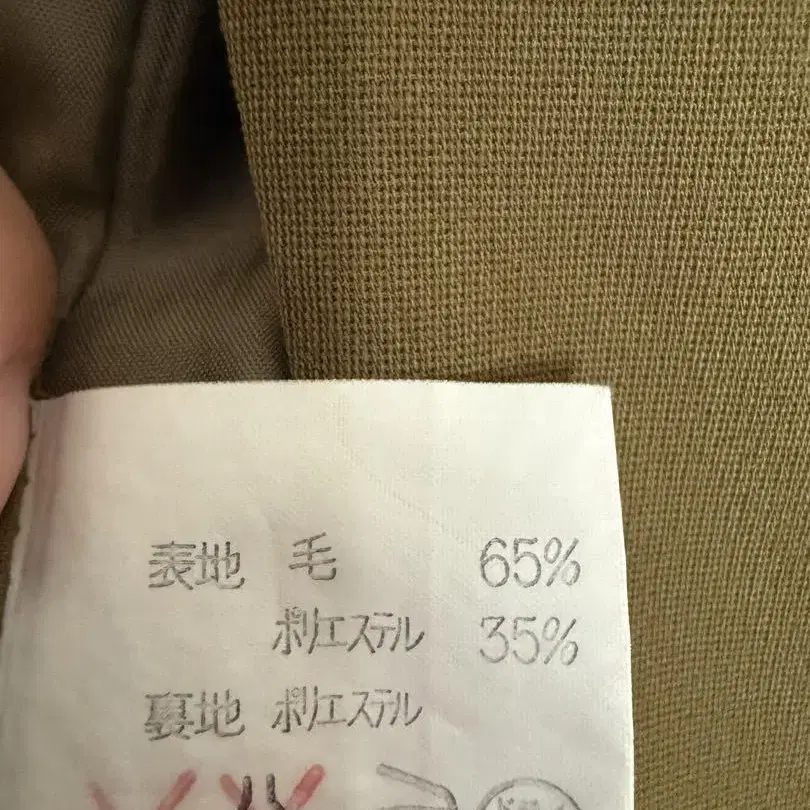 表地 毛 65%
ポリエステル 35%
裏地 ポリエステル